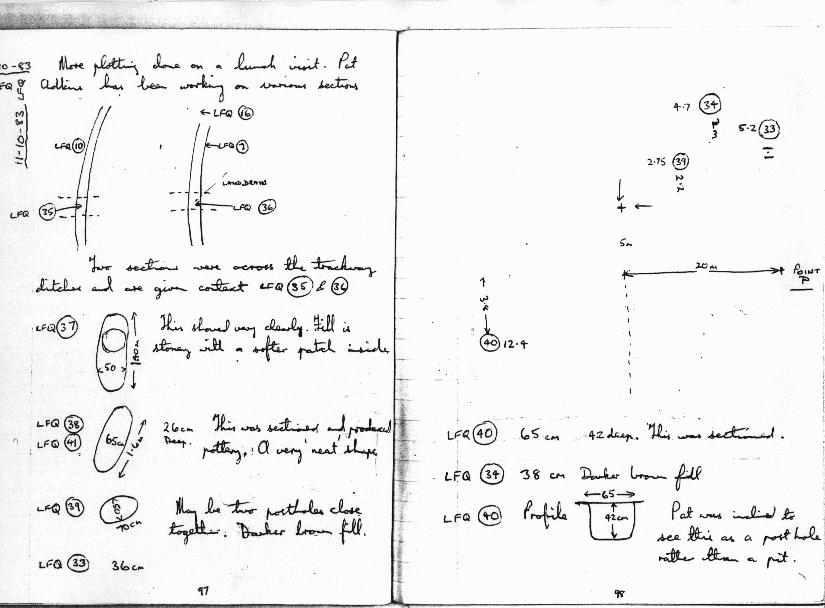 10-83 More plotting done on a lunch visit. Pat
LFQ Adkins has been working on various sections
11-10-83 LFQ
← LFQ 16
LFQ 10
← LFQ 7
LAND DRAIN
LFQ 35
LFQ 36
Two sections were across the trackway
ditches and are given context LFQ 35 & 36
LFQ 37 This showed very clearly. Fill is
stoney with a softer patch inside
50
LFQ 38 26cm This was sectioned and produced
LFQ 41 Deep. pottery. A very neat shape
65cm
1.6m
LFQ 39 May be two postholes close
together. Darker brown fill.
70cm
LFQ 33 36cm
97
4.7 34
5.2 33
1.1
2.75 39
2.2
+
5m
20m
POINT
3.8
40 12.4
LFQ 40 65 cm 42 deep. This was sectioned.
LFQ 34 38 cm Darker brown fill
65
LFQ 40 Profile 42cm Pat was inclined to
see this as a post hole
rather than a pit.
98